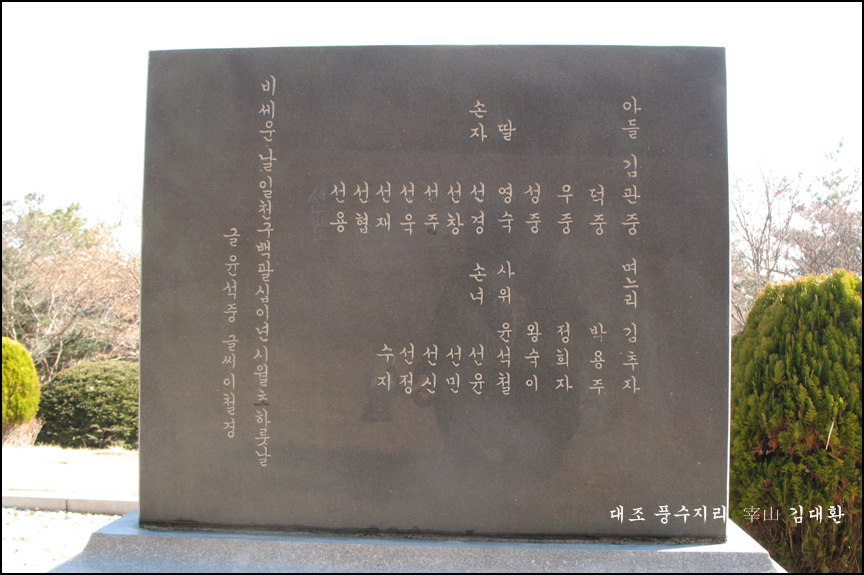 아들 김관중 며느리 김추자
덕중 박용주
우중 정희자
성중 왕숙이
딸 영숙 사위 윤석철
손자 선경 손녀 선윤
선창 선민
선신
선욱 선정
선재 수지
선협
선용
비 세운 날 일천구백팔십이년 시월 초하룻날
글 윤석중 글씨 이철경
대조 풍수지리 宰山 김대환